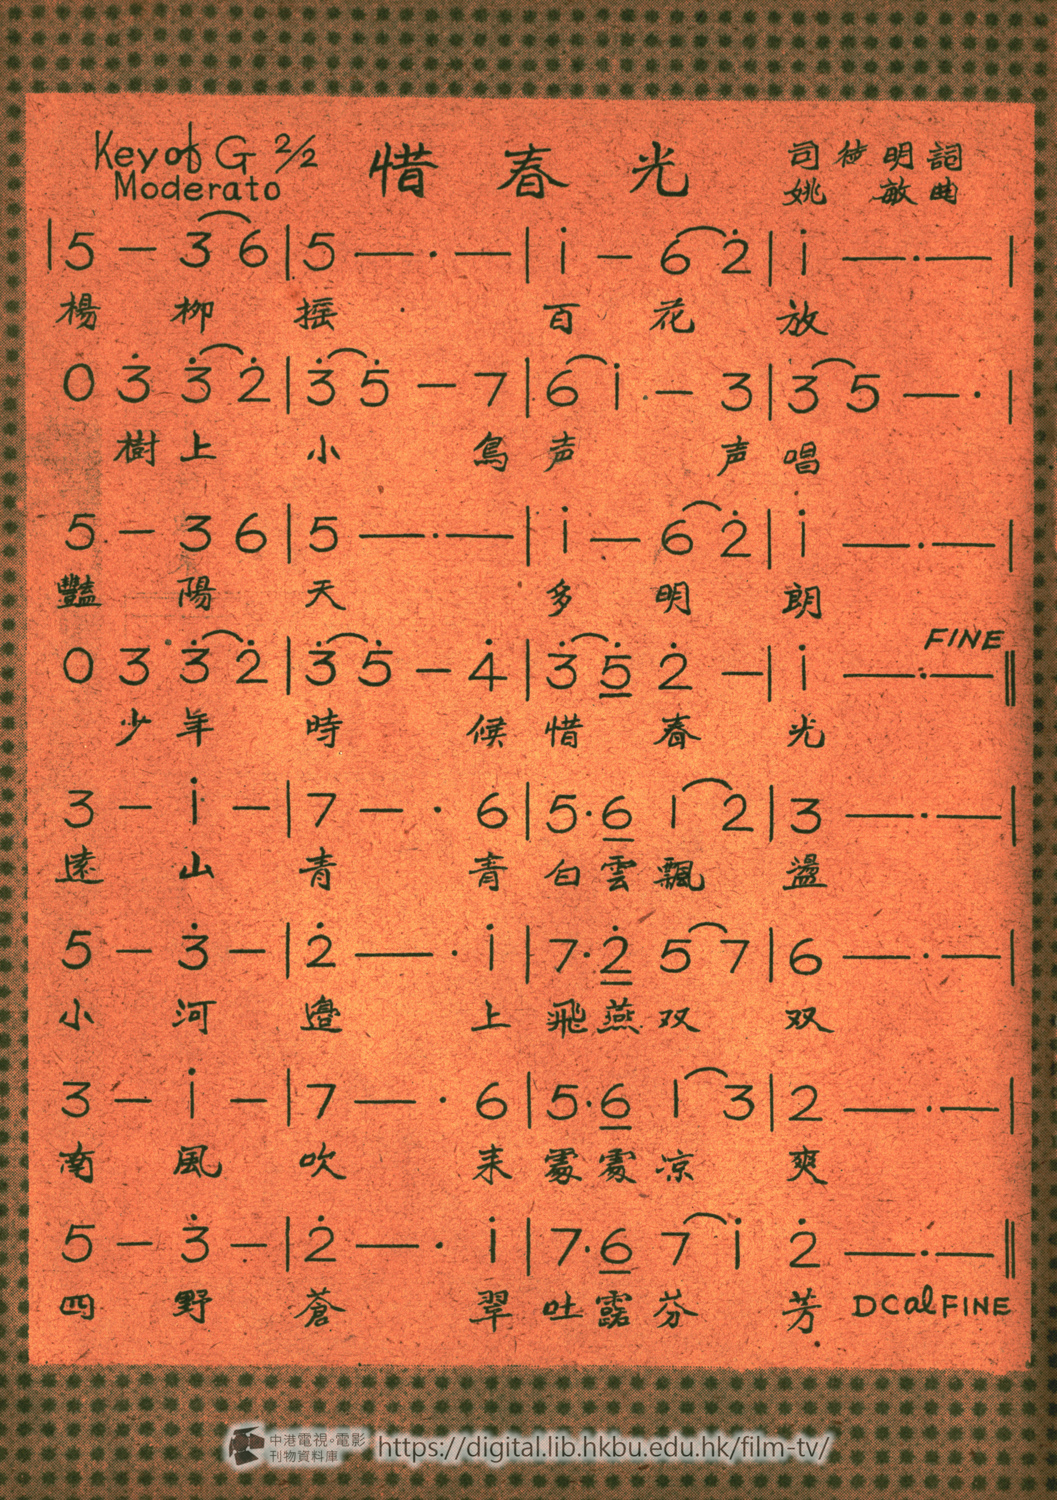 Key of G 2/2
Moderato
惜春光
司徒明詞
姚敏曲
|5 — 3 6|5 — · —|i̇ — 6 2̇|i̇ — · —|
楊 柳 摇 百 花 放
0 3̇ 3̇ 2̇|3̇ 5̇ — 7|6 i̇ — 3|3 5 — ·|
樹 上 小 鳥 声 声 唱
5 — 3 6|5 — · —|i̇ — 6 2̇|i̇ — · —|
豔 陽 天 多 明 朗
FINE
0 3 3̇ 2̇|3̇ 5̇ — 4̇|3̇ 5̇ 2̇ —|i̇ — · —‖
少 年 時 候 惜 春 光
3 — i̇ —|7 — · 6|5·6 1 2|3 — · —|
遠 山 青 青 白 雲 飄 盪
5 — 3̇ —|2̇ — · i̇|7·2̇ 5 7|6 — · —|
小 河 邊 上 飛 燕 双 双
3 — i̇ —|7 — · 6|5·6 1 3|2 — · —|
南 風 吹 来 處 處 凉 爽
5 — 3̇ —|2̇ — · i̇|7·6 7 i̇|2̇ — · —‖
四 野 蒼 翠 吐 露 芬 芳
DC al FINE
中港電視·電影
刊物資料庫
https://digital.lib.hkbu.edu.hk/film-tv/